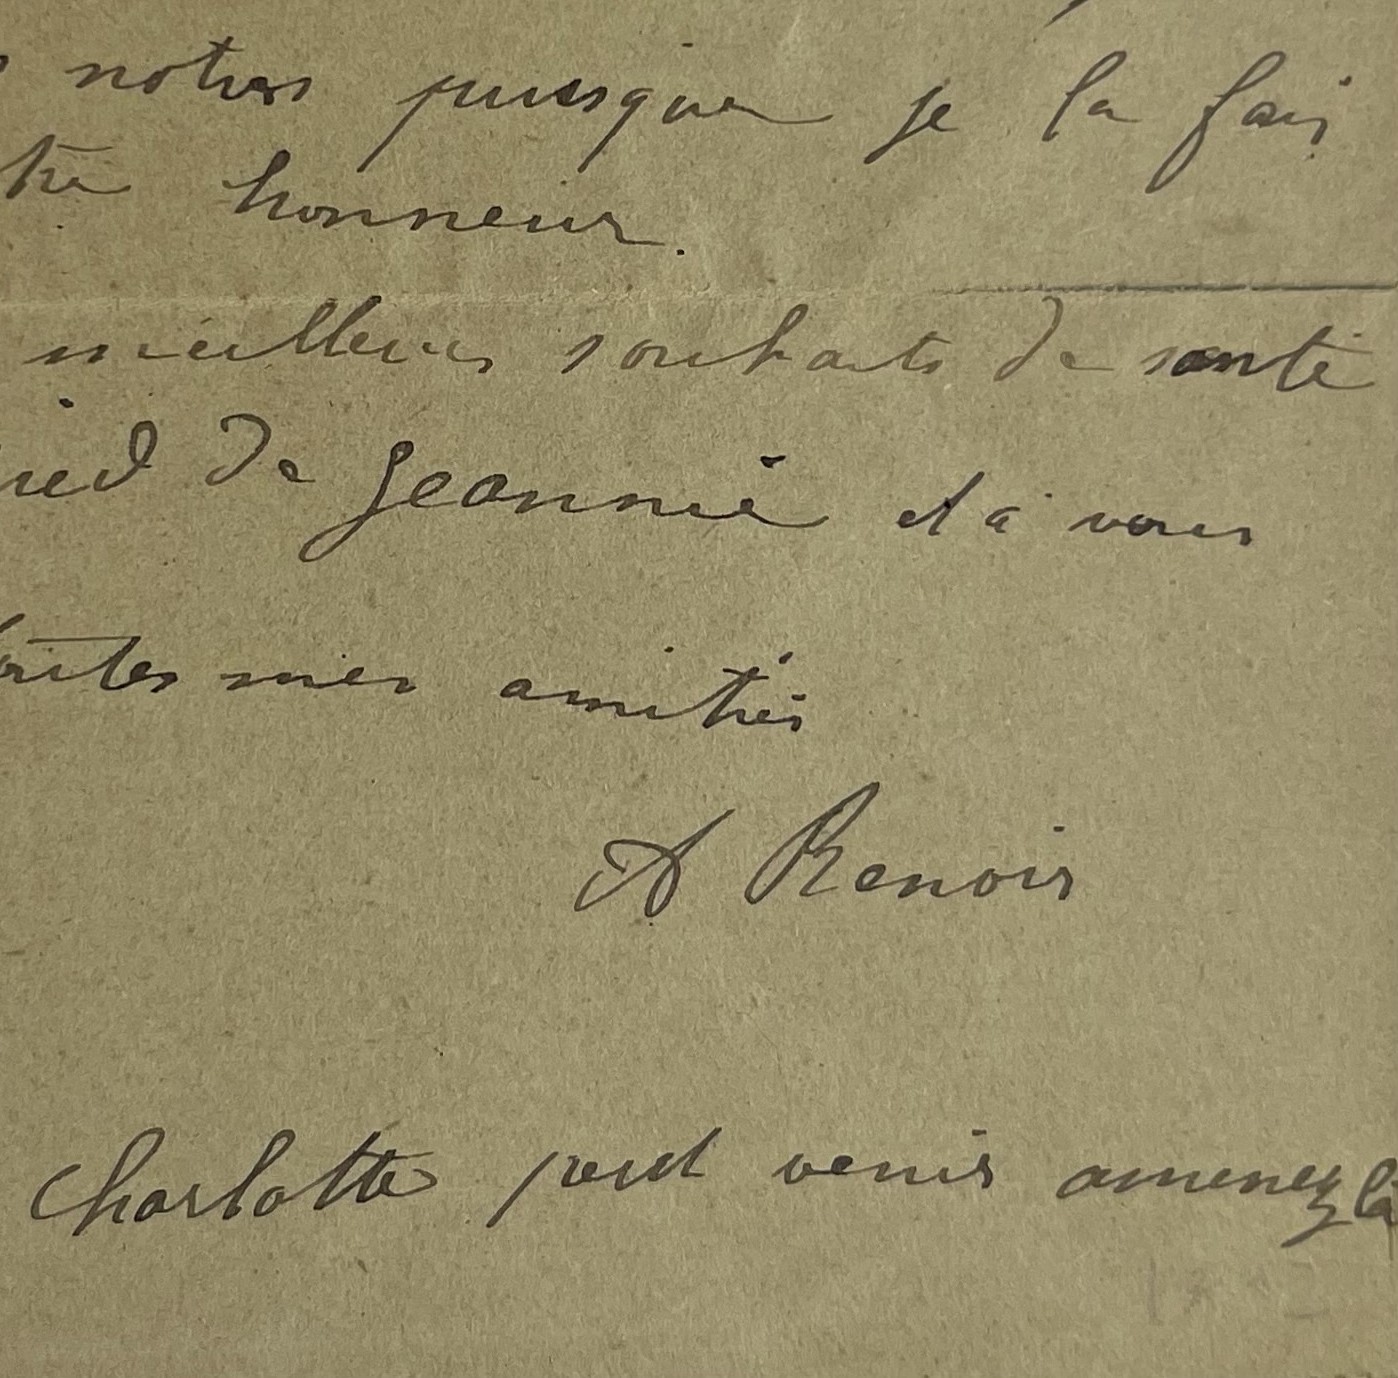 notres puisque je la fais
tre honneur.
meilleurs souhaits de santé
ied de Jeannie et à vous
outes mes amitiés
A Renoir
Charlotte peut venir amenez la